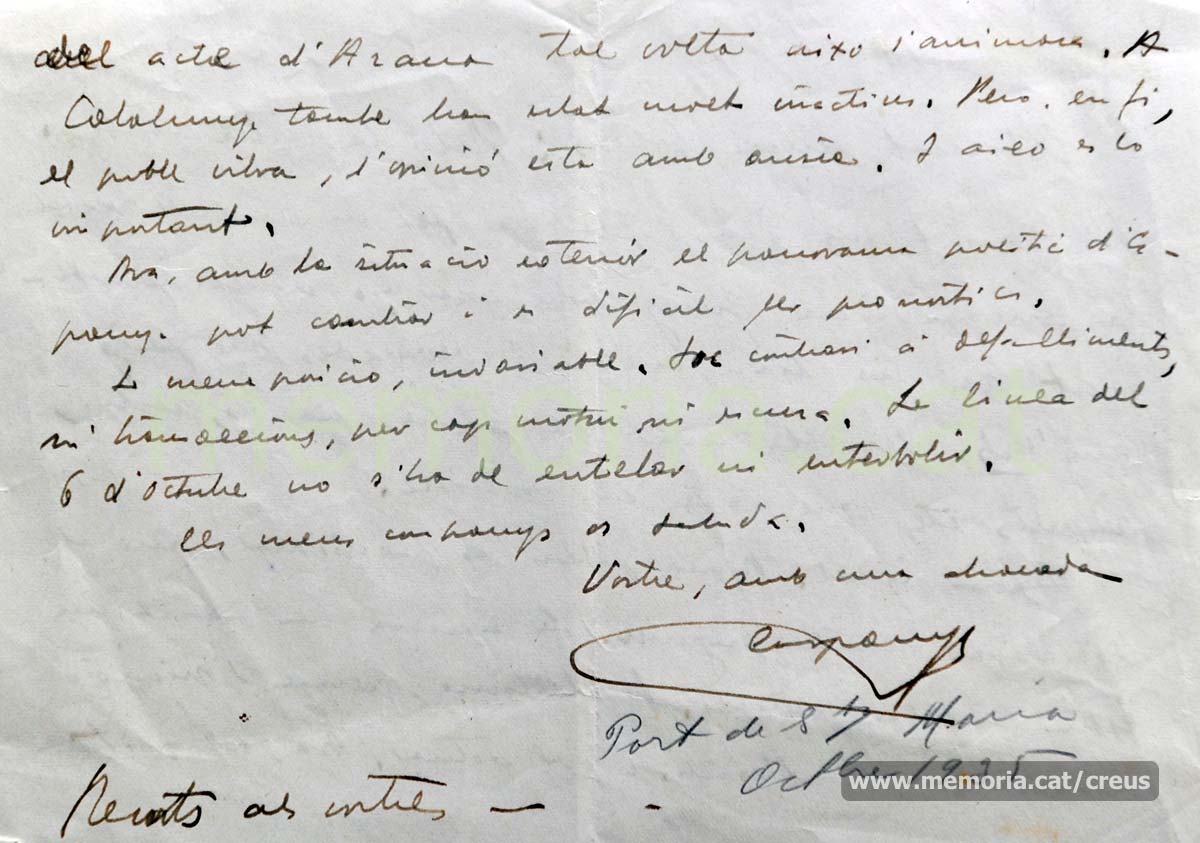 del acte d'Arana tal volta aixo s'animara. A
Catalunya tambe han estat molt inactius. Pero, en fi,
el poble vibra, l'opinió esta amb ansia. I aixo es lo
important.
Ara, amb la situacio exterior el panorama politic d'Es-
panya pot cambiar i es dificil fer pronostics.
La meva posicio, invariable. Soc contrari a defalliments,
ni transaccions, per cap motiu ni escusa. La linea del
6 d'octubre no s'ha de entelar ni enterbolir.
Els meus companys os saluda.
Vostre, amb una abraçada
Companys
Port de Sta Maria
Octbre 1935
Records als vostres —
memoria.cat
www.memoria.cat/creus